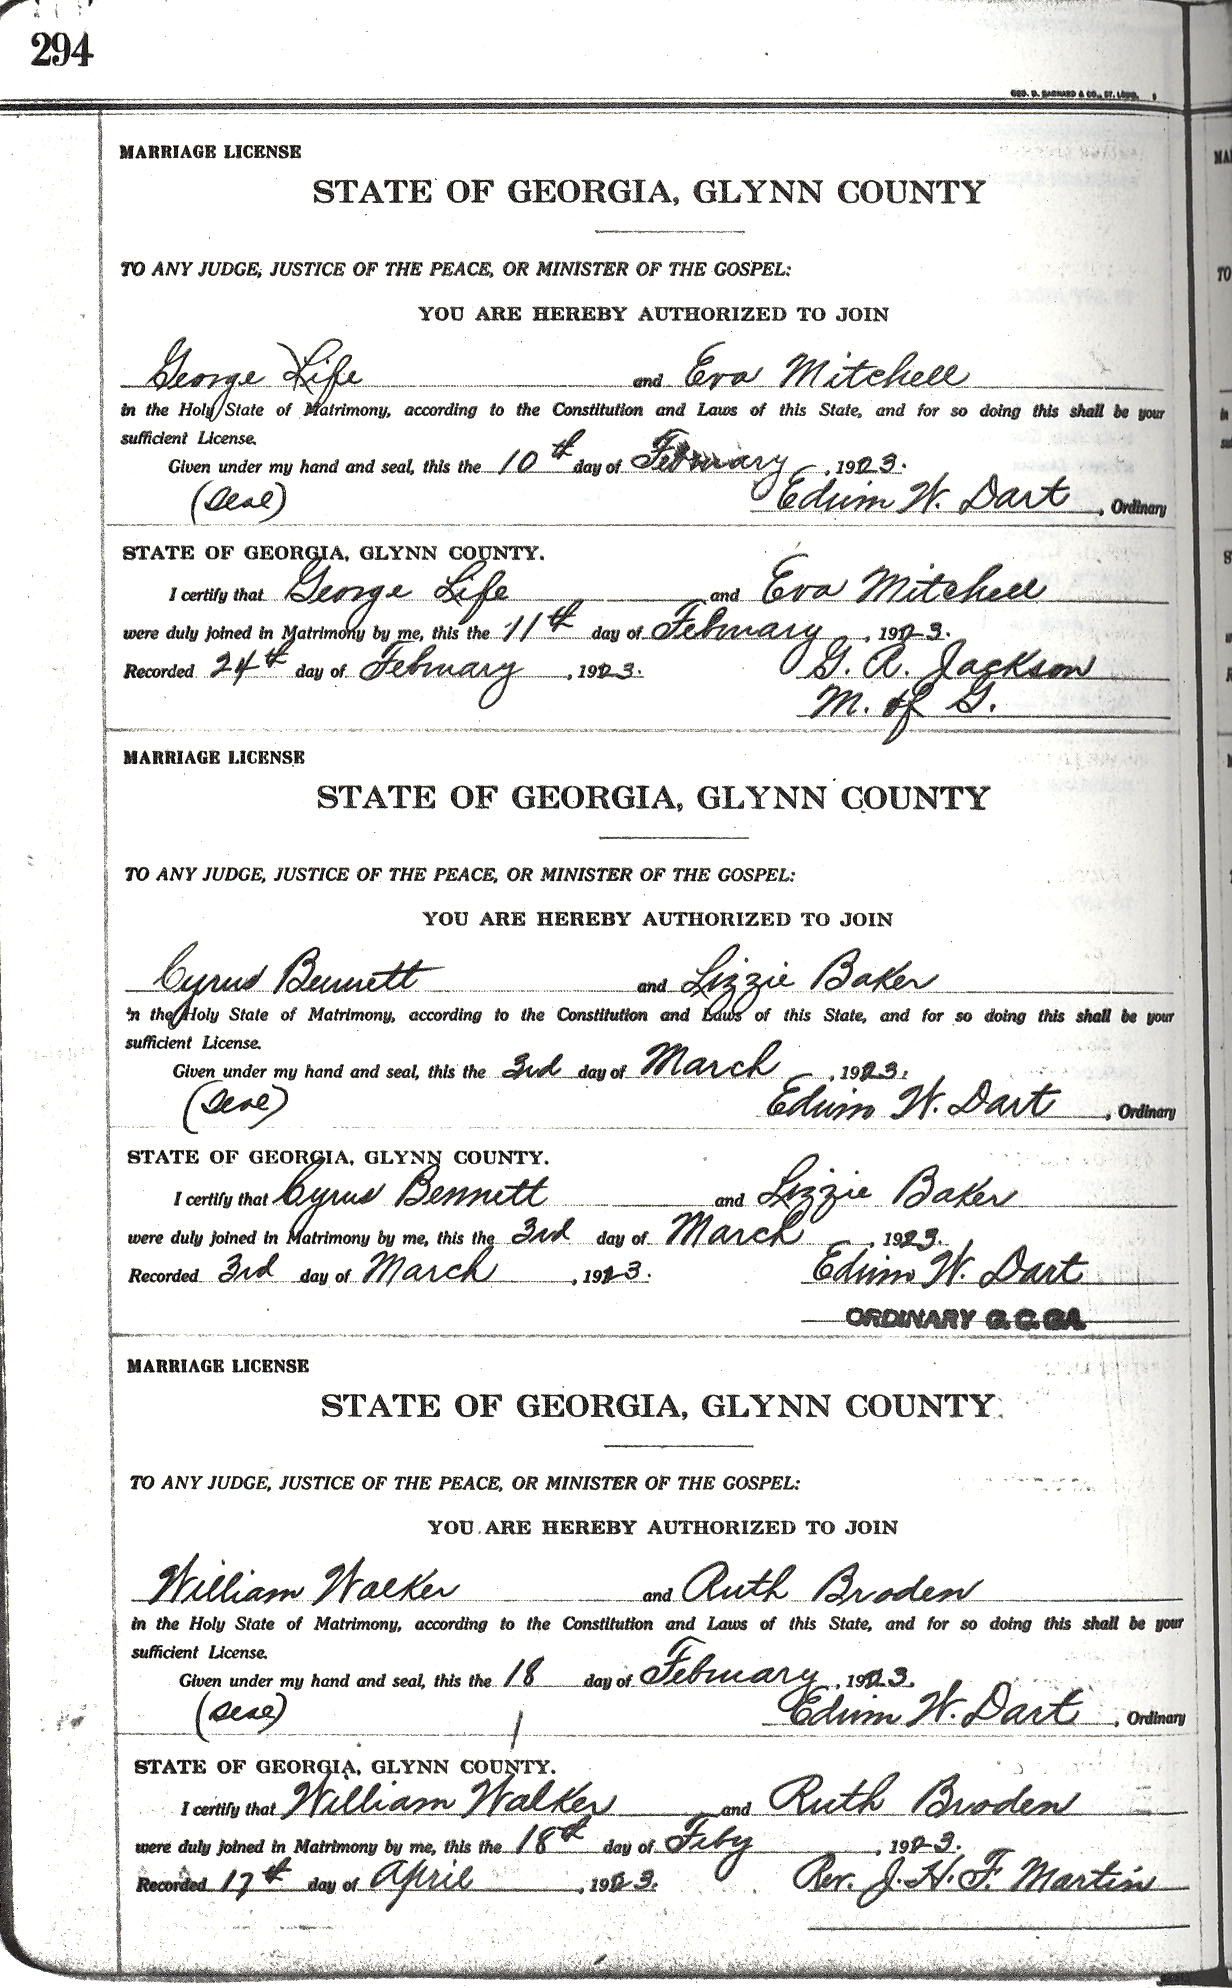 294
GEO. D. BARNARD & CO., ST. LOUIS.
MARRIAGE LICENSE
STATE OF GEORGIA, GLYNN COUNTY
TO ANY JUDGE, JUSTICE OF THE PEACE, OR MINISTER OF THE GOSPEL:
YOU ARE HEREBY AUTHORIZED TO JOIN
George Life and Eva Mitchell
in the Holy State of Matrimony, according to the Constitution and Laws of this State, and for so doing this shall be your
sufficient License.
Given under my hand and seal, this the 10th day of February, 1923.
(Seal) Edwin W. Dart, Ordinary
STATE OF GEORGIA, GLYNN COUNTY.
I certify that George Life and Eva Mitchell
were duly joined in Matrimony by me, this the 11th day of February, 1923.
Recorded 24th day of February, 1923. G. A. Jackson
M. of G.
MARRIAGE LICENSE
STATE OF GEORGIA, GLYNN COUNTY
TO ANY JUDGE, JUSTICE OF THE PEACE, OR MINISTER OF THE GOSPEL:
YOU ARE HEREBY AUTHORIZED TO JOIN
Cyrus Bennett and Lizzie Baker
in the Holy State of Matrimony, according to the Constitution and Laws of this State, and for so doing this shall be your
sufficient License.
Given under my hand and seal, this the 3rd day of March, 1923.
(Seal) Edwin W. Dart, Ordinary
STATE OF GEORGIA, GLYNN COUNTY.
I certify that Cyrus Bennett and Lizzie Baker
were duly joined in Matrimony by me, this the 3rd day of March, 1923.
Recorded 3rd day of March, 1923. Edwin W. Dart
ORDINARY G. C. GA.
MARRIAGE LICENSE
STATE OF GEORGIA, GLYNN COUNTY
TO ANY JUDGE, JUSTICE OF THE PEACE, OR MINISTER OF THE GOSPEL:
YOU ARE HEREBY AUTHORIZED TO JOIN
William Walker and Ruth Broden
in the Holy State of Matrimony, according to the Constitution and Laws of this State, and for so doing this shall be your
sufficient License.
Given under my hand and seal, this the 18 day of February, 1923.
(Seal) Edwin W. Dart, Ordinary
STATE OF GEORGIA, GLYNN COUNTY.
I certify that William Walker and Ruth Broden
were duly joined in Matrimony by me, this the 18th day of Feby, 1923.
Recorded 17th day of April, 1923. Rev. J. H. F. Martin